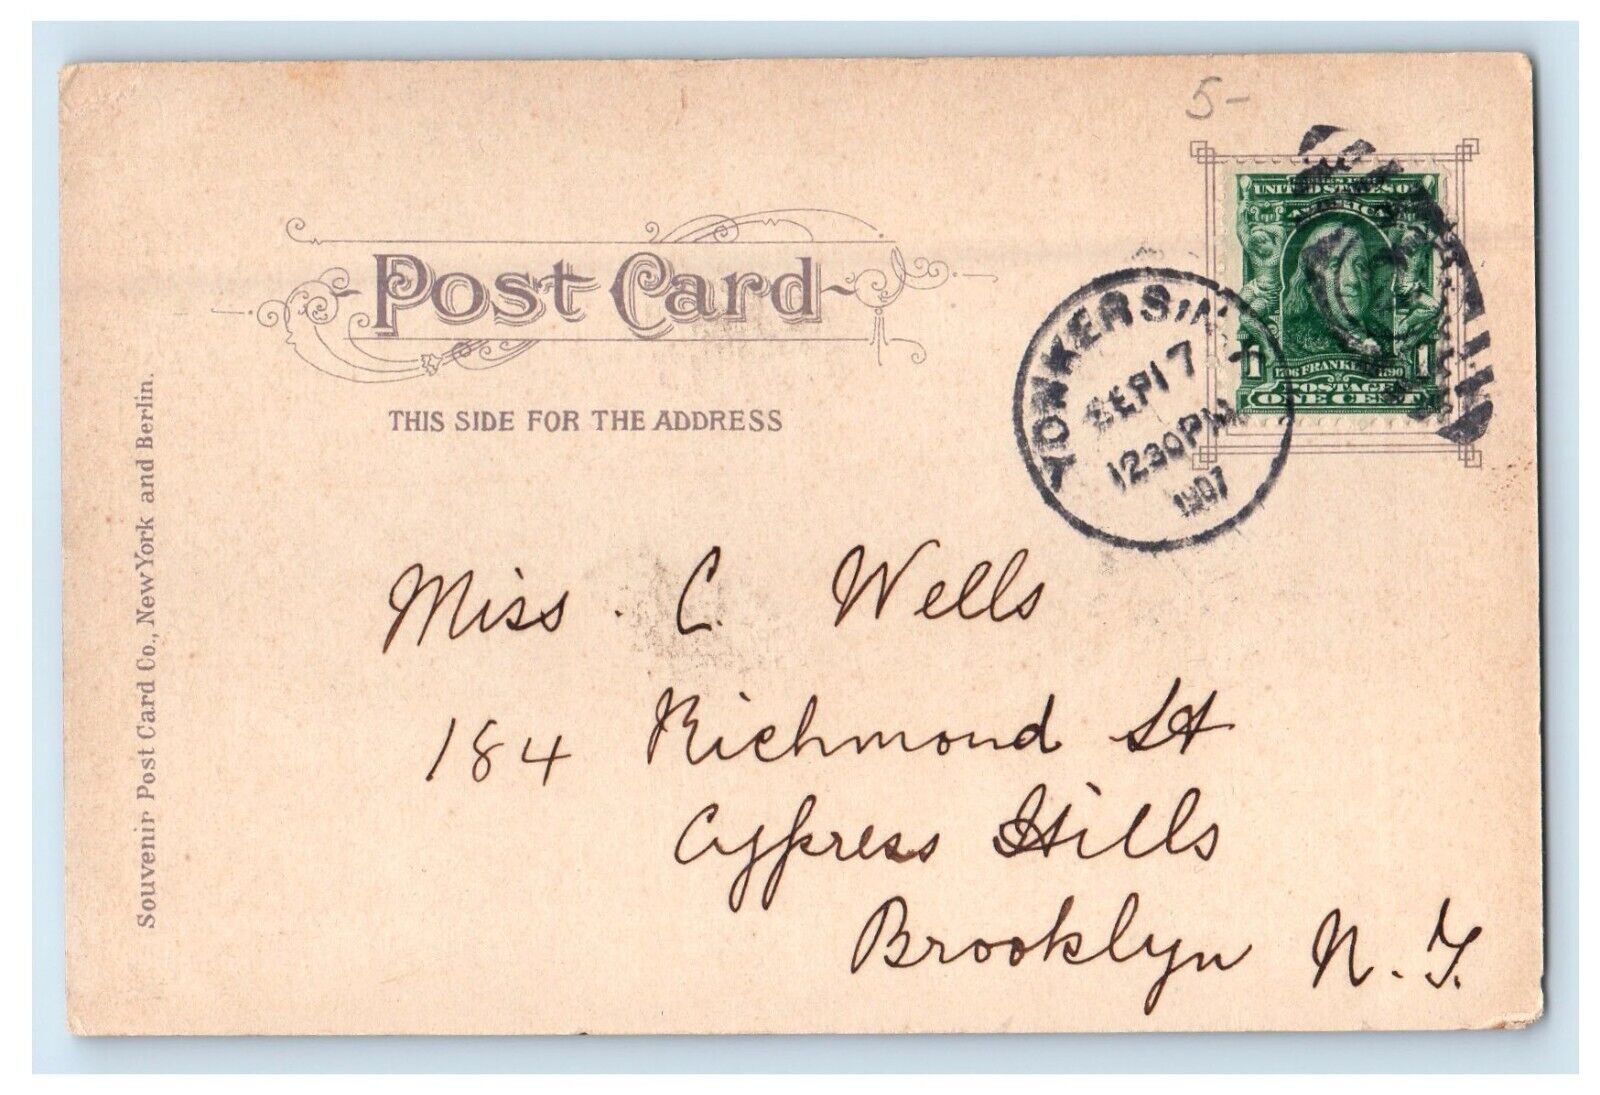 5-
UNITED STATES OF
AMERICA
1706 FRANKLIN 1790
POSTAGE
1 1
ONE CENT
YONKERS, N.Y.
SEP 17
1230 PM
1907
Post Card
THIS SIDE FOR THE ADDRESS
Souvenir Post Card Co., New York and Berlin.
Miss . C. Wells
184 Richmond St
Cypress Hills
Brooklyn N. Y.